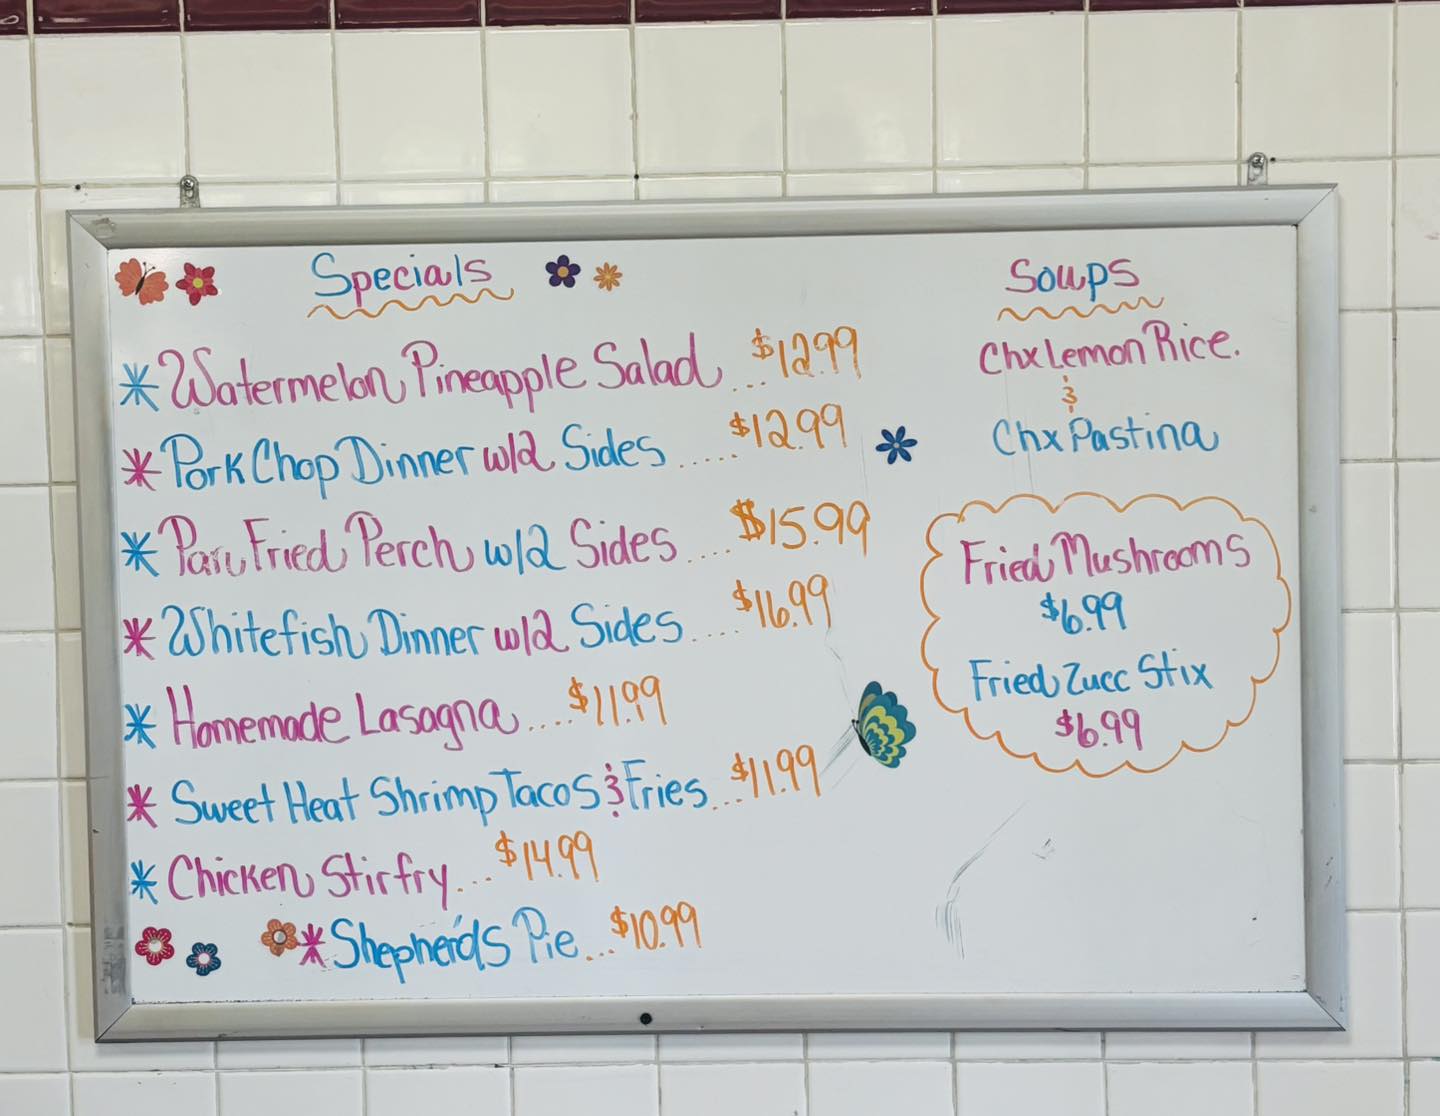 Specials
* Watermelon Pineapple Salad ... $12.99
* Pork Chop Dinner w/2 Sides ..... $12.99
* Pan Fried Perch w/2 Sides .... $15.99
* Whitefish Dinner w/2 Sides .... $16.99
* Homemade Lasagna .... $11.99
* Sweet Heat Shrimp Tacos & Fries ... $11.99
* Chicken Stirfry ... $14.99
* Shepherd's Pie ... $10.99
Soups
Chx Lemon Rice.
&
Chx Pastina
Fried Mushrooms
$6.99
Fried Zucc Stix
$6.99